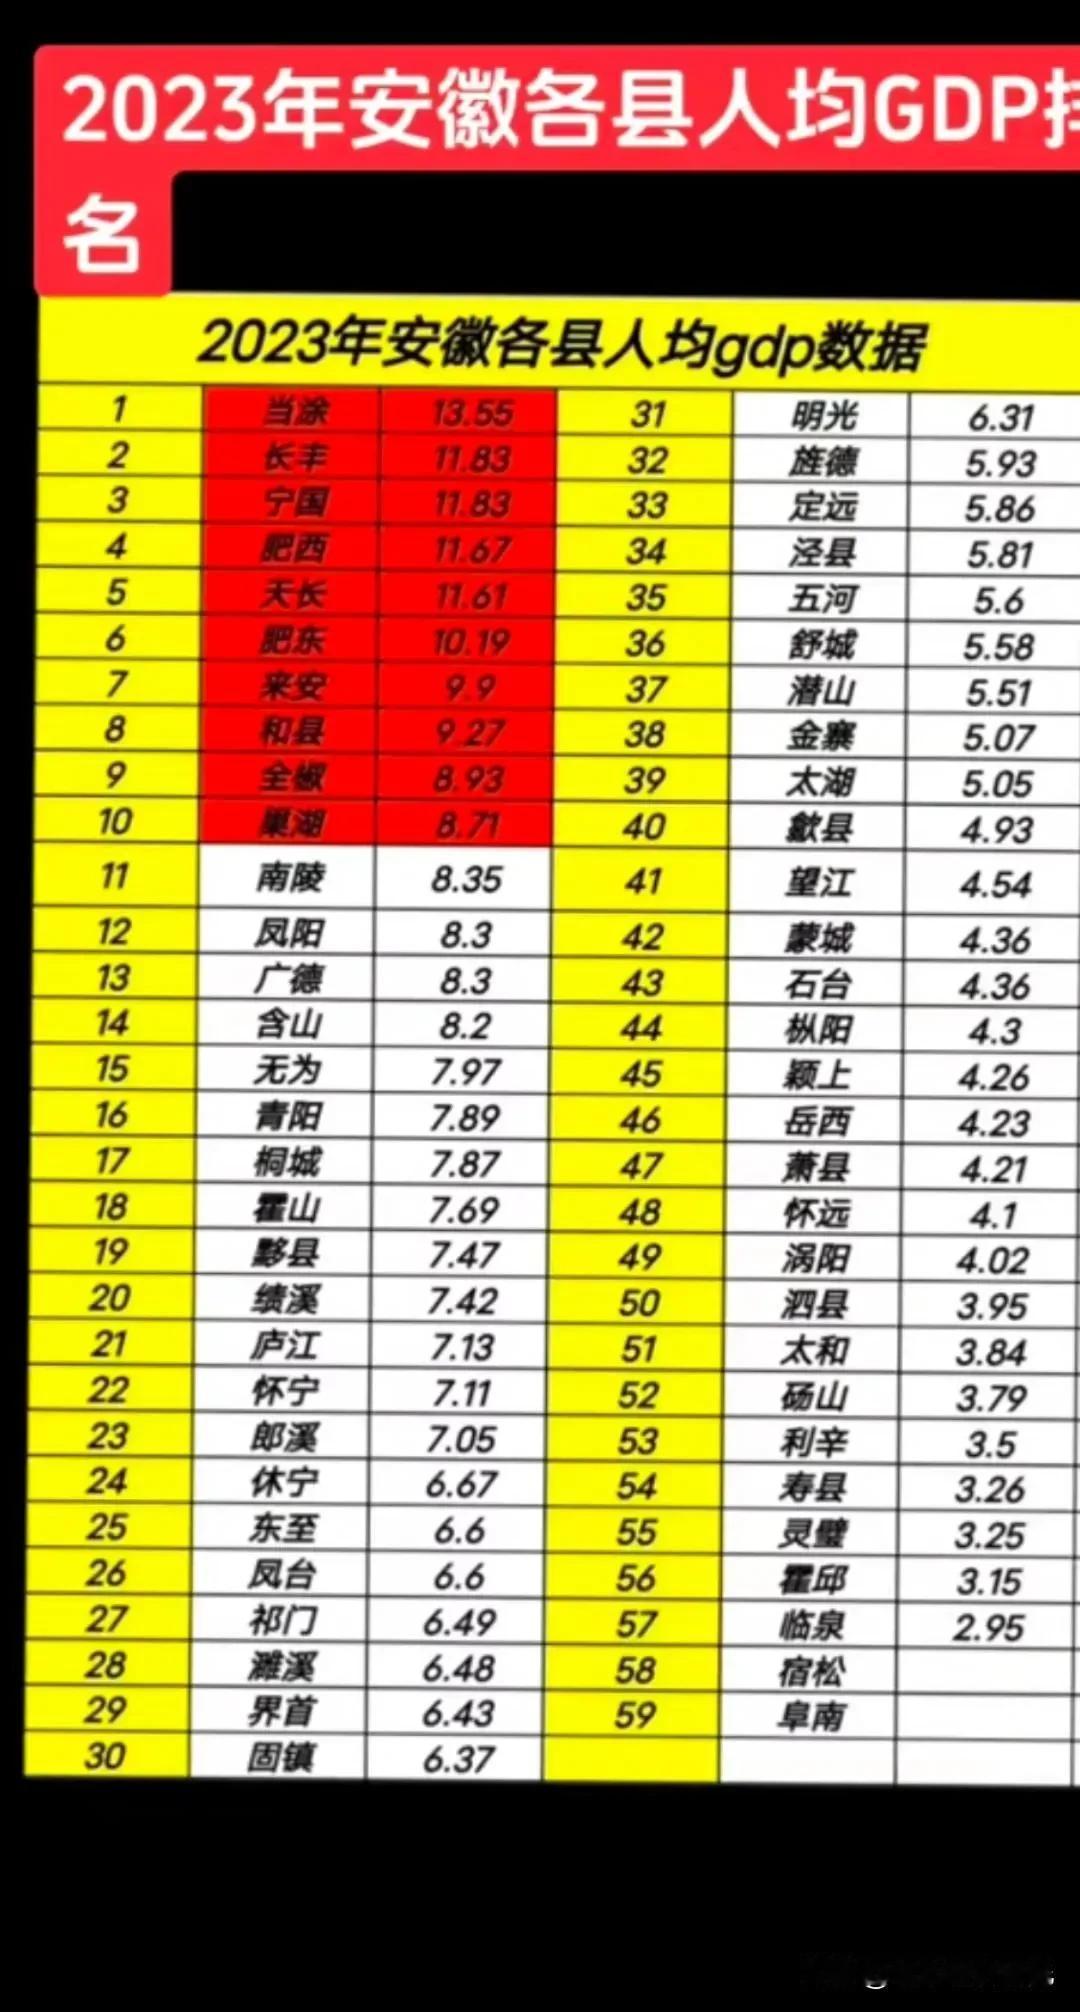 2023年安徽各县人均GDP排
名
2023年安徽各县人均gdp数据
1 当涂 13.55 31 明光 6.31
2 长丰 11.83 32 旌德 5.93
3 宁国 11.83 33 定远 5.86
4 肥西 11.67 34 泾县 5.81
5 天长 11.61 35 五河 5.6
6 肥东 10.19 36 舒城 5.58
7 来安 9.9 37 潜山 5.51
8 和县 9.27 38 金寨 5.07
9 全椒 8.93 39 太湖 5.05
10 巢湖 8.71 40 歙县 4.93
11 南陵 8.35 41 望江 4.54
12 凤阳 8.3 42 蒙城 4.36
13 广德 8.3 43 石台 4.36
14 含山 8.2 44 枞阳 4.3
15 无为 7.97 45 颍上 4.26
16 青阳 7.89 46 岳西 4.23
17 桐城 7.87 47 萧县 4.21
18 霍山 7.69 48 怀远 4.1
19 黟县 7.47 49 涡阳 4.02
20 绩溪 7.42 50 泗县 3.95
21 庐江 7.13 51 太和 3.84
22 怀宁 7.11 52 砀山 3.79
23 郎溪 7.05 53 利辛 3.5
24 休宁 6.67 54 寿县 3.26
25 东至 6.6 55 灵璧 3.25
26 凤台 6.6 56 霍邱 3.15
27 祁门 6.49 57 临泉 2.95
28 濉溪 6.48 58 宿松
29 界首 6.43 59 阜南
30 固镇 6.37